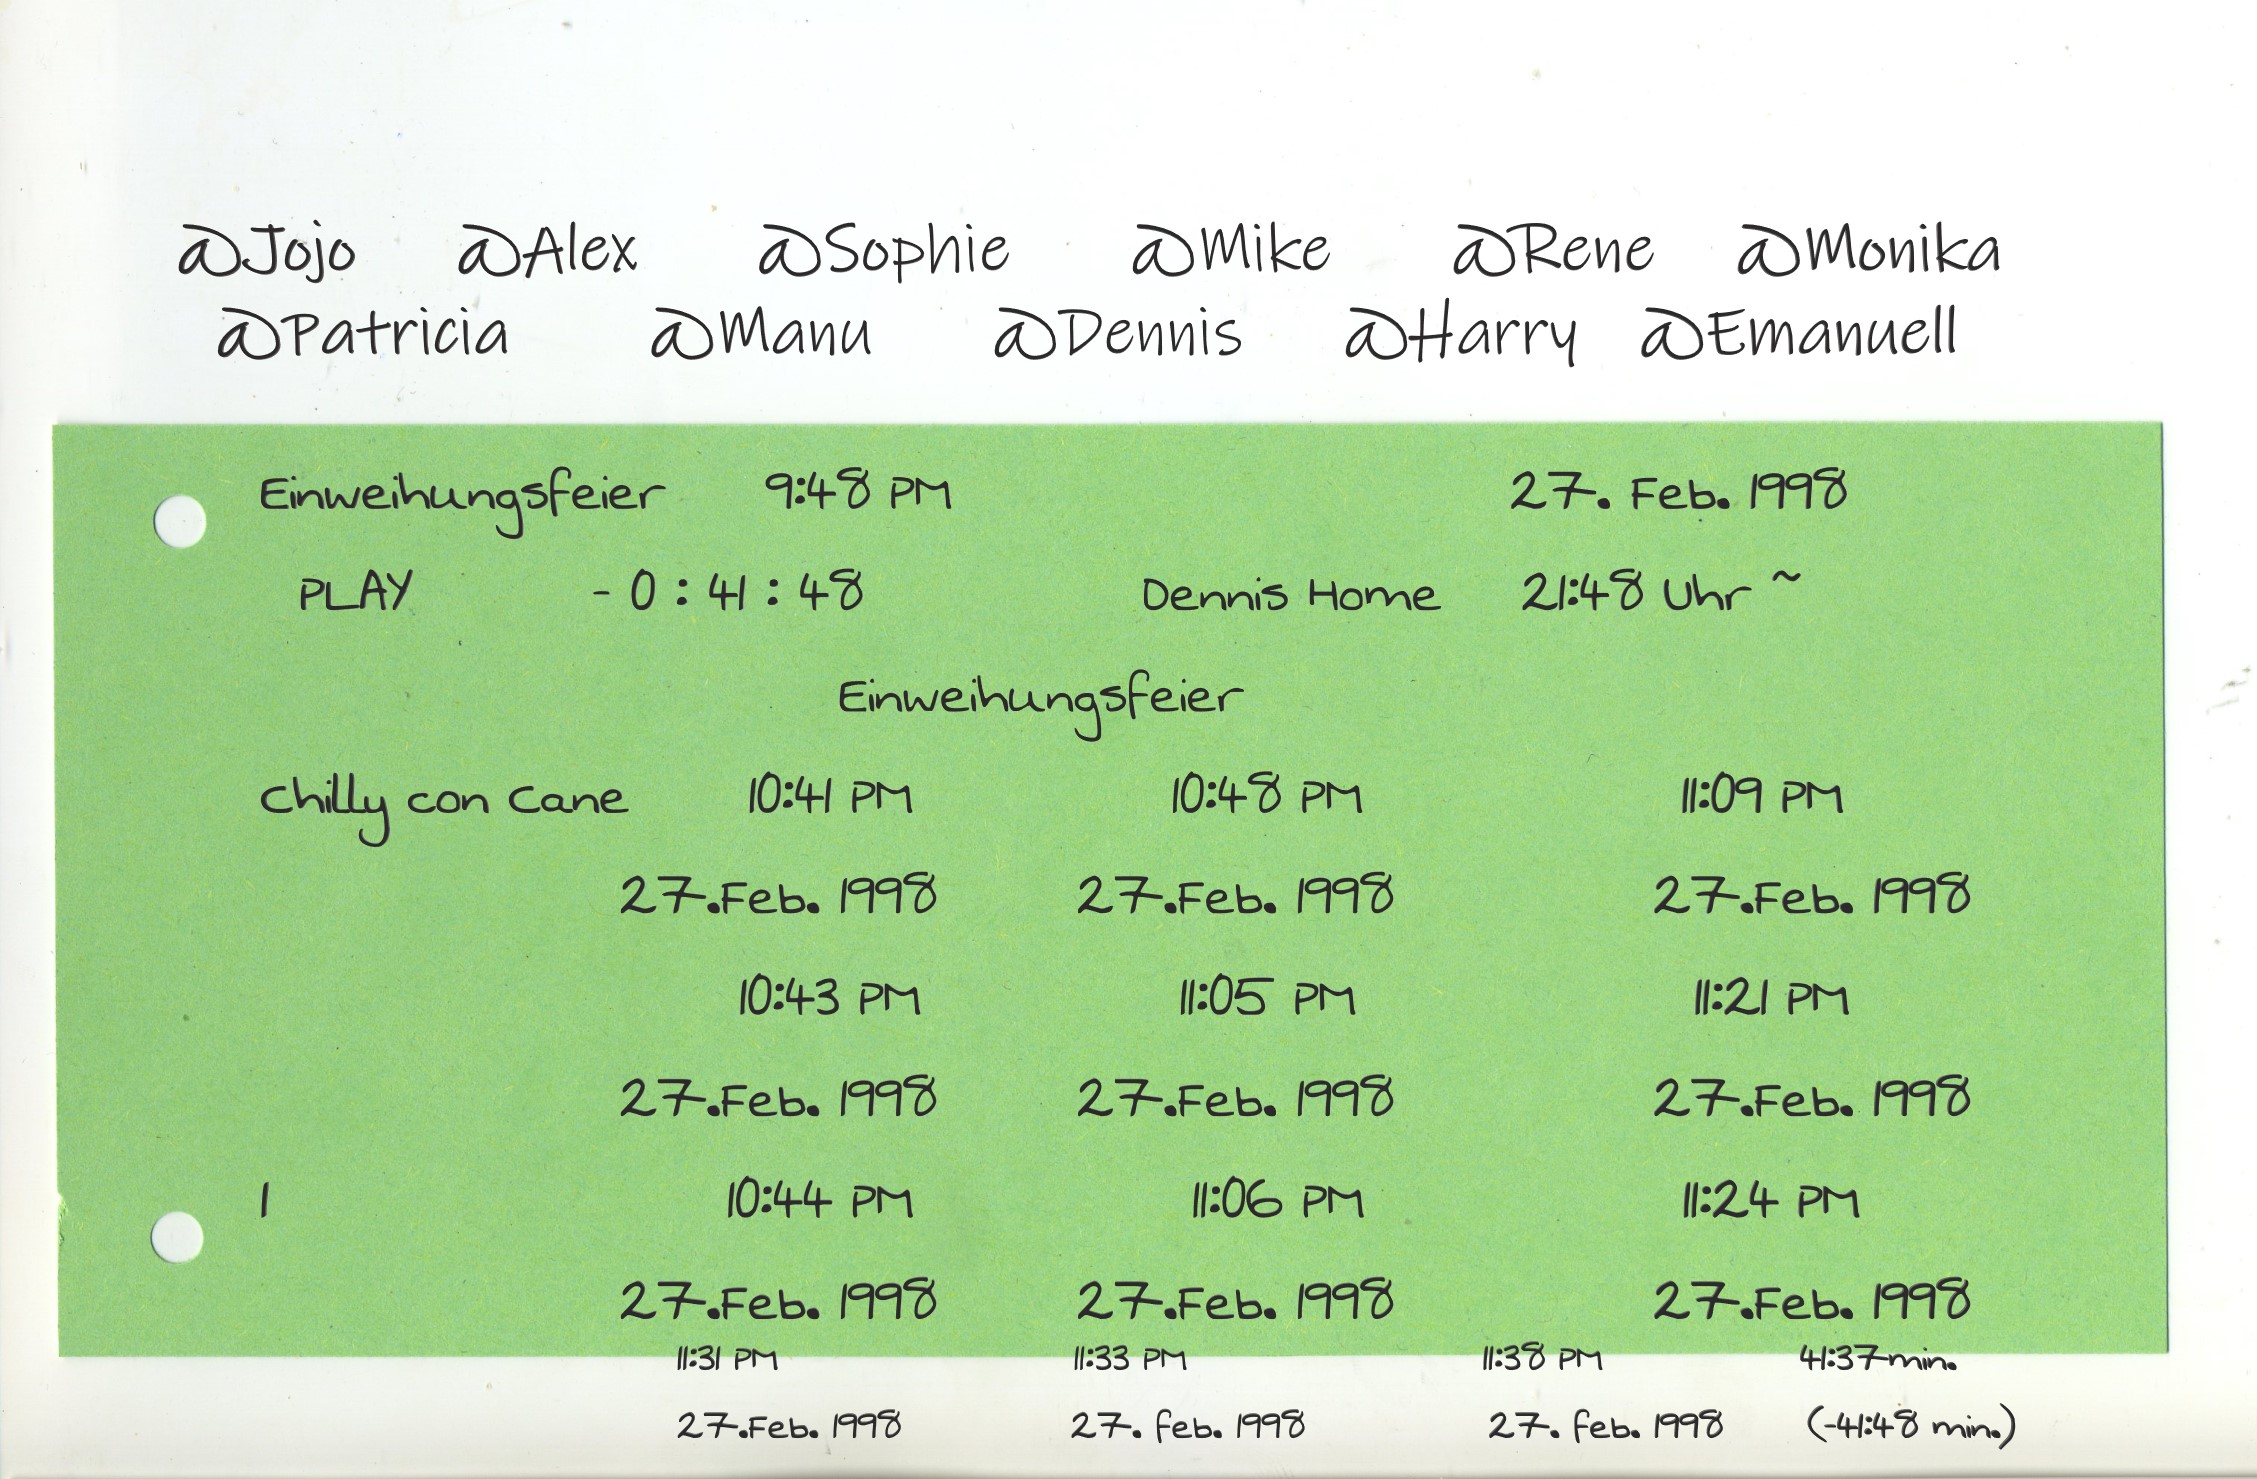 @Jojo @Alex @Sophie @Mike @Rene @Monika
@Patricia @Manu @Dennis @Harry @Emanuell
Einweihungsfeier 9:48 PM 27. Feb. 1998
PLAY - 0 : 41 : 48 Dennis Home 21:48 Uhr ~
Einweihungsfeier
Chilly con Cane 10:41 PM 10:48 PM 11:09 PM
27.Feb. 1998 27.Feb. 1998 27.Feb. 1998
10:43 PM 11:05 PM 11:21 PM
27.Feb. 1998 27.Feb. 1998 27.Feb. 1998
1 10:44 PM 11:06 PM 11:24 PM
27.Feb. 1998 27.Feb. 1998 27.Feb. 1998
11:31 PM 11:33 PM 11:38 PM 41:37min.
27.Feb. 1998 27. feb. 1998 27. feb. 1998 (-41:48 min.)